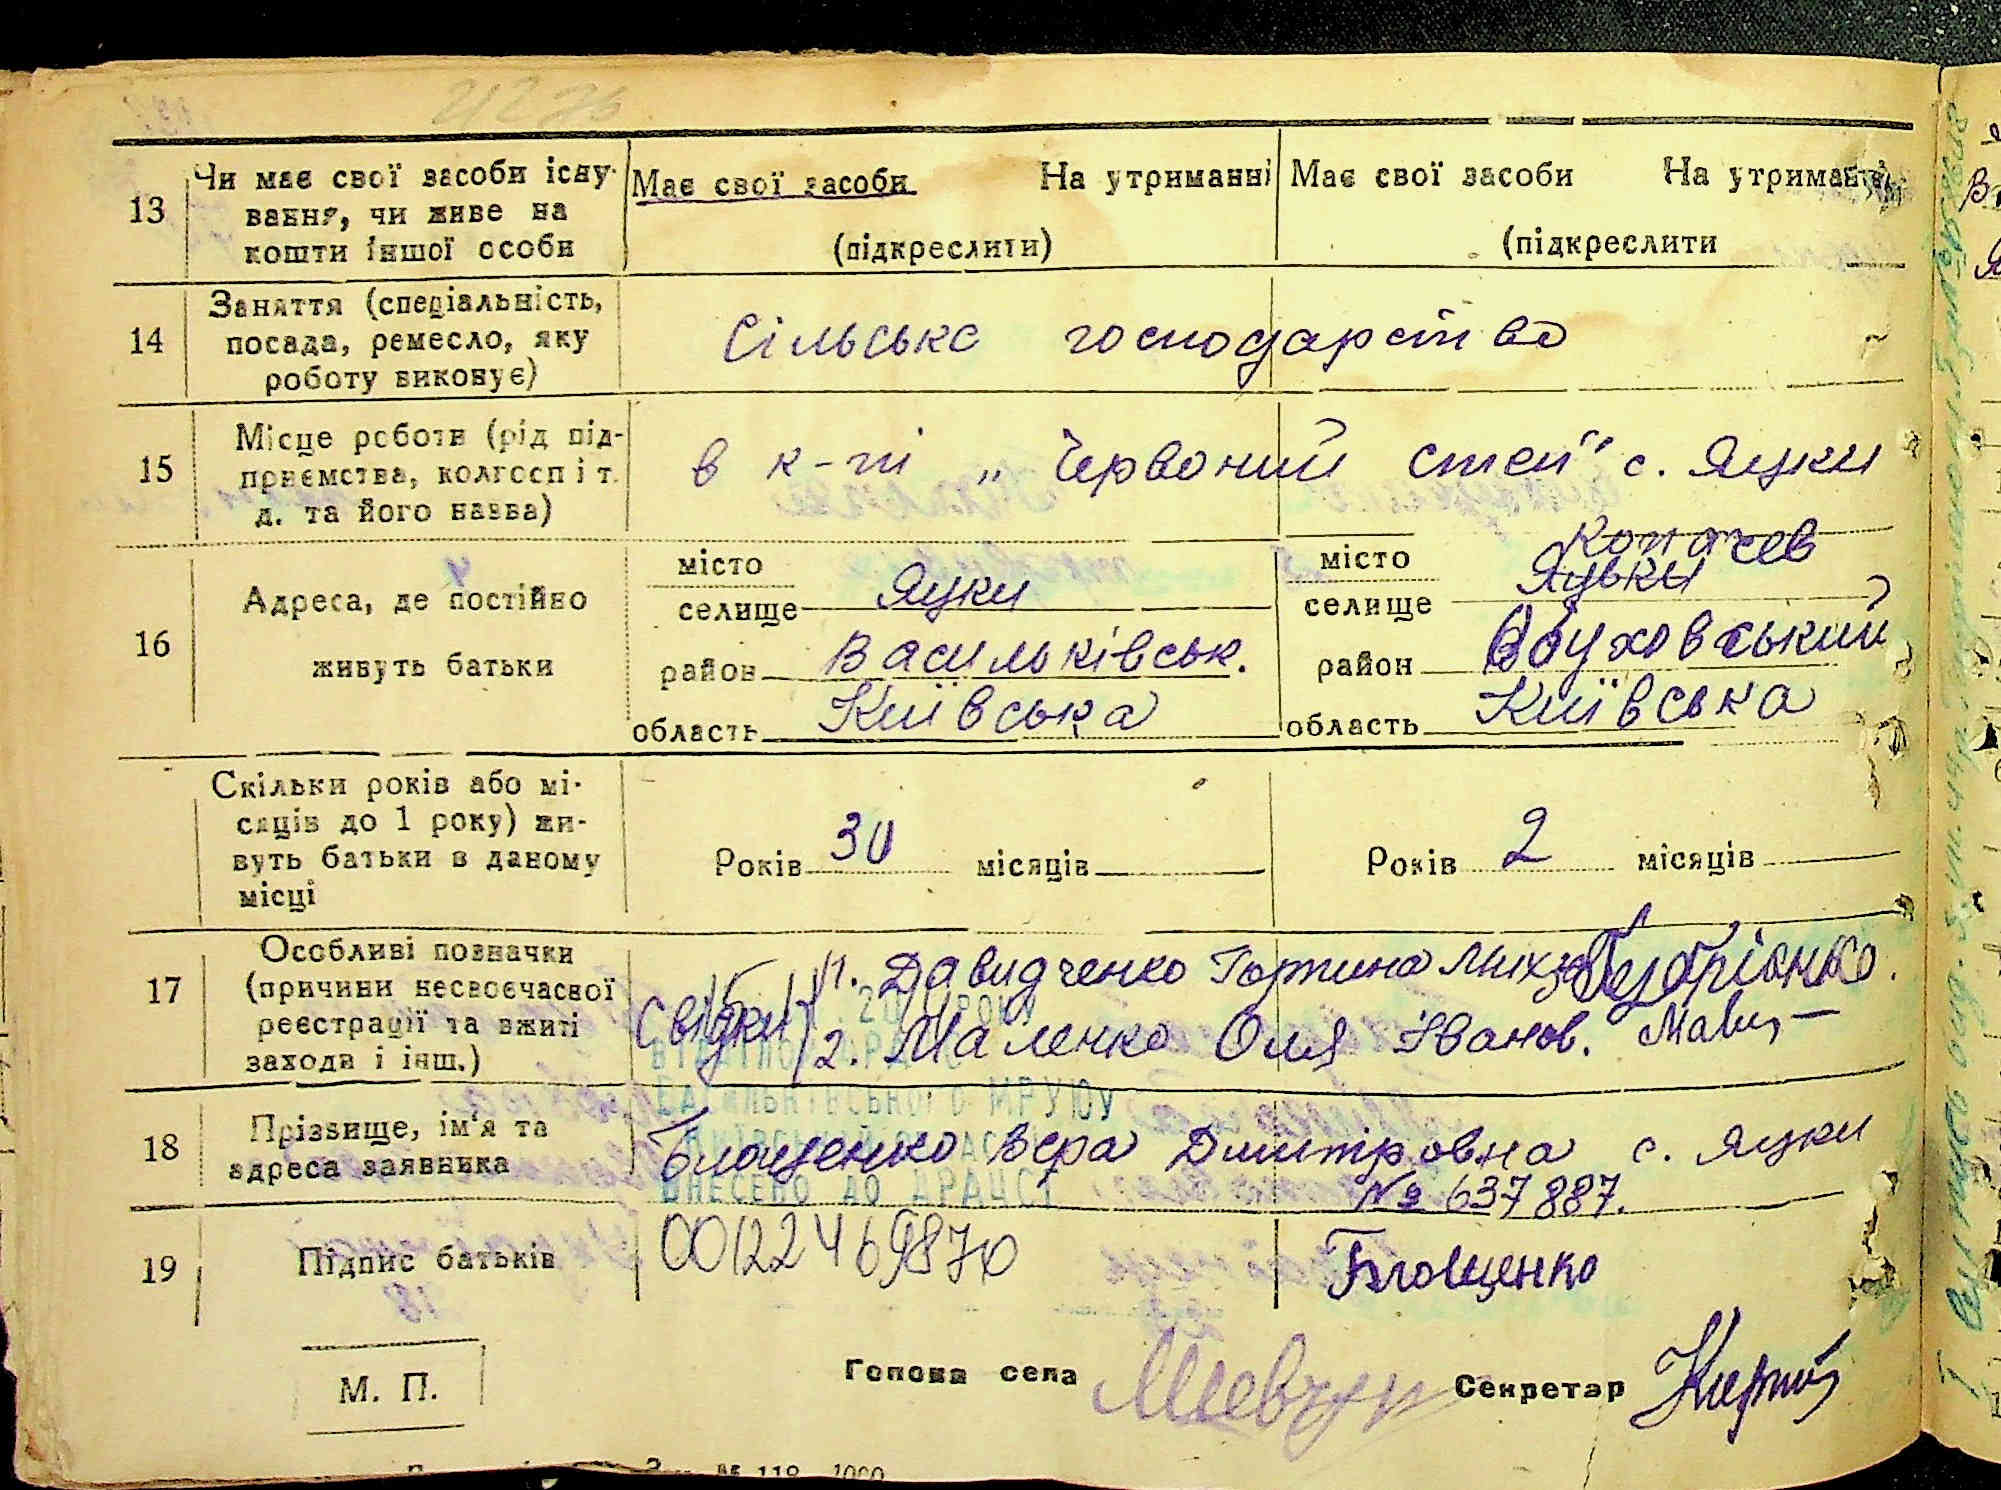 13 Чи має свої засоби існу- Має свої засоби На утриманні Має свої засоби На утриманні
вання, чи живе на
кошти іншої особи (підкреслити) (підкреслити
14 Заняття (спеціальність,
посада, ремесло, яку Сільське господарство
роботу виконує)
15 Місце роботи (рід під-
приємства, колгосп і т. в к-пі „Червоний степ" с. Яцки
д. та його назва)
16 Адреса, де постійно
живуть батьки
місто
селище Яцки
район Васильківськ.
область Київська
місто Копачев
селище Яцьки
район Обуховський
область Київська
Скільки років або мі-
сяців до 1 року) жи-
вуть батьки в даному Років 30 місяців Років 2 місяців
місці
17 Особливі позначки
(причини несвоєчасної 1. Давидченко
реєстрації та вжиті Свідки 2. Маленко Оля Іванов.
заходи і інш.)
ВАСИЛЬКІВСЬКОГО МРУЮУ
18 Прізвище, ім'я та Блощенко Вера Дмитровна с. Яцки
адреса заявника № 637887.
ВНЕСЕНО ДО ДРАЦСГ
19 Підпис батьків 00122469870 Блощенко
М. П. Голова села Секретар